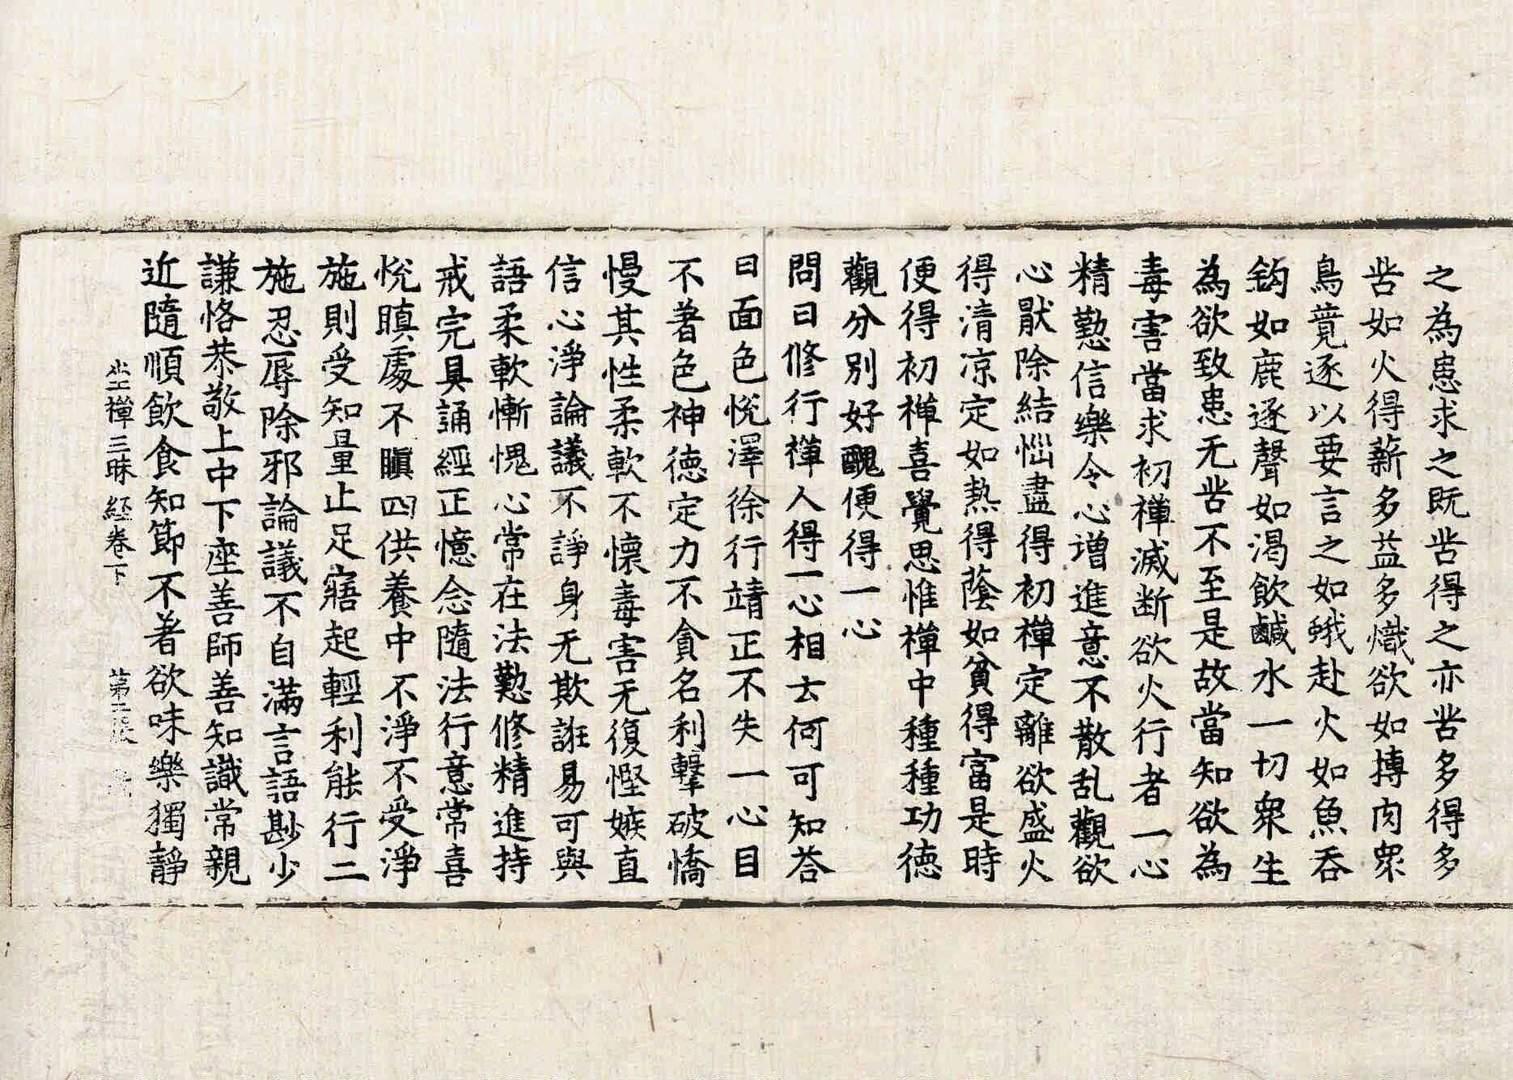 之為患求之既苦得之亦苦多得多
苦如火得薪多益多熾欲如摶肉眾
鳥競逐以要言之如蛾赴火如魚吞
鉤如鹿逐聲如渴飲鹹水一切眾生
為欲致患无苦不至是故當知欲為
毒害當求初禪滅断欲火行者一心
精懃信樂令心增進意不散乱觀欲
心猒除結惱盡得初禪定離欲盛火
得清涼定如熱得蔭如貧得富是時
便得初禪喜覺思惟禪中種種功德
觀分別好醜便得一心
問曰修行禪人得一心相云何可知答
曰面色悅澤徐行靖正不失一心目
不著色神德定力不貪名利擊破憍
慢其性柔軟不懷毒害无復慳嫉直
信心淨論議不諍身无欺誑易可與
語柔軟慚愧心常在法懃修精進持
戒完具誦經正憶念隨法行意常喜
悅瞋處不瞋四供養中不淨不受淨
施則受知量止足寤起輕利能行二
施忍辱除邪論議不自滿言語尠少
謙恪恭敬上中下座善師善知識常親
近隨順飲食知節不著欲味樂獨靜
坐禪三昧經卷下 第 張